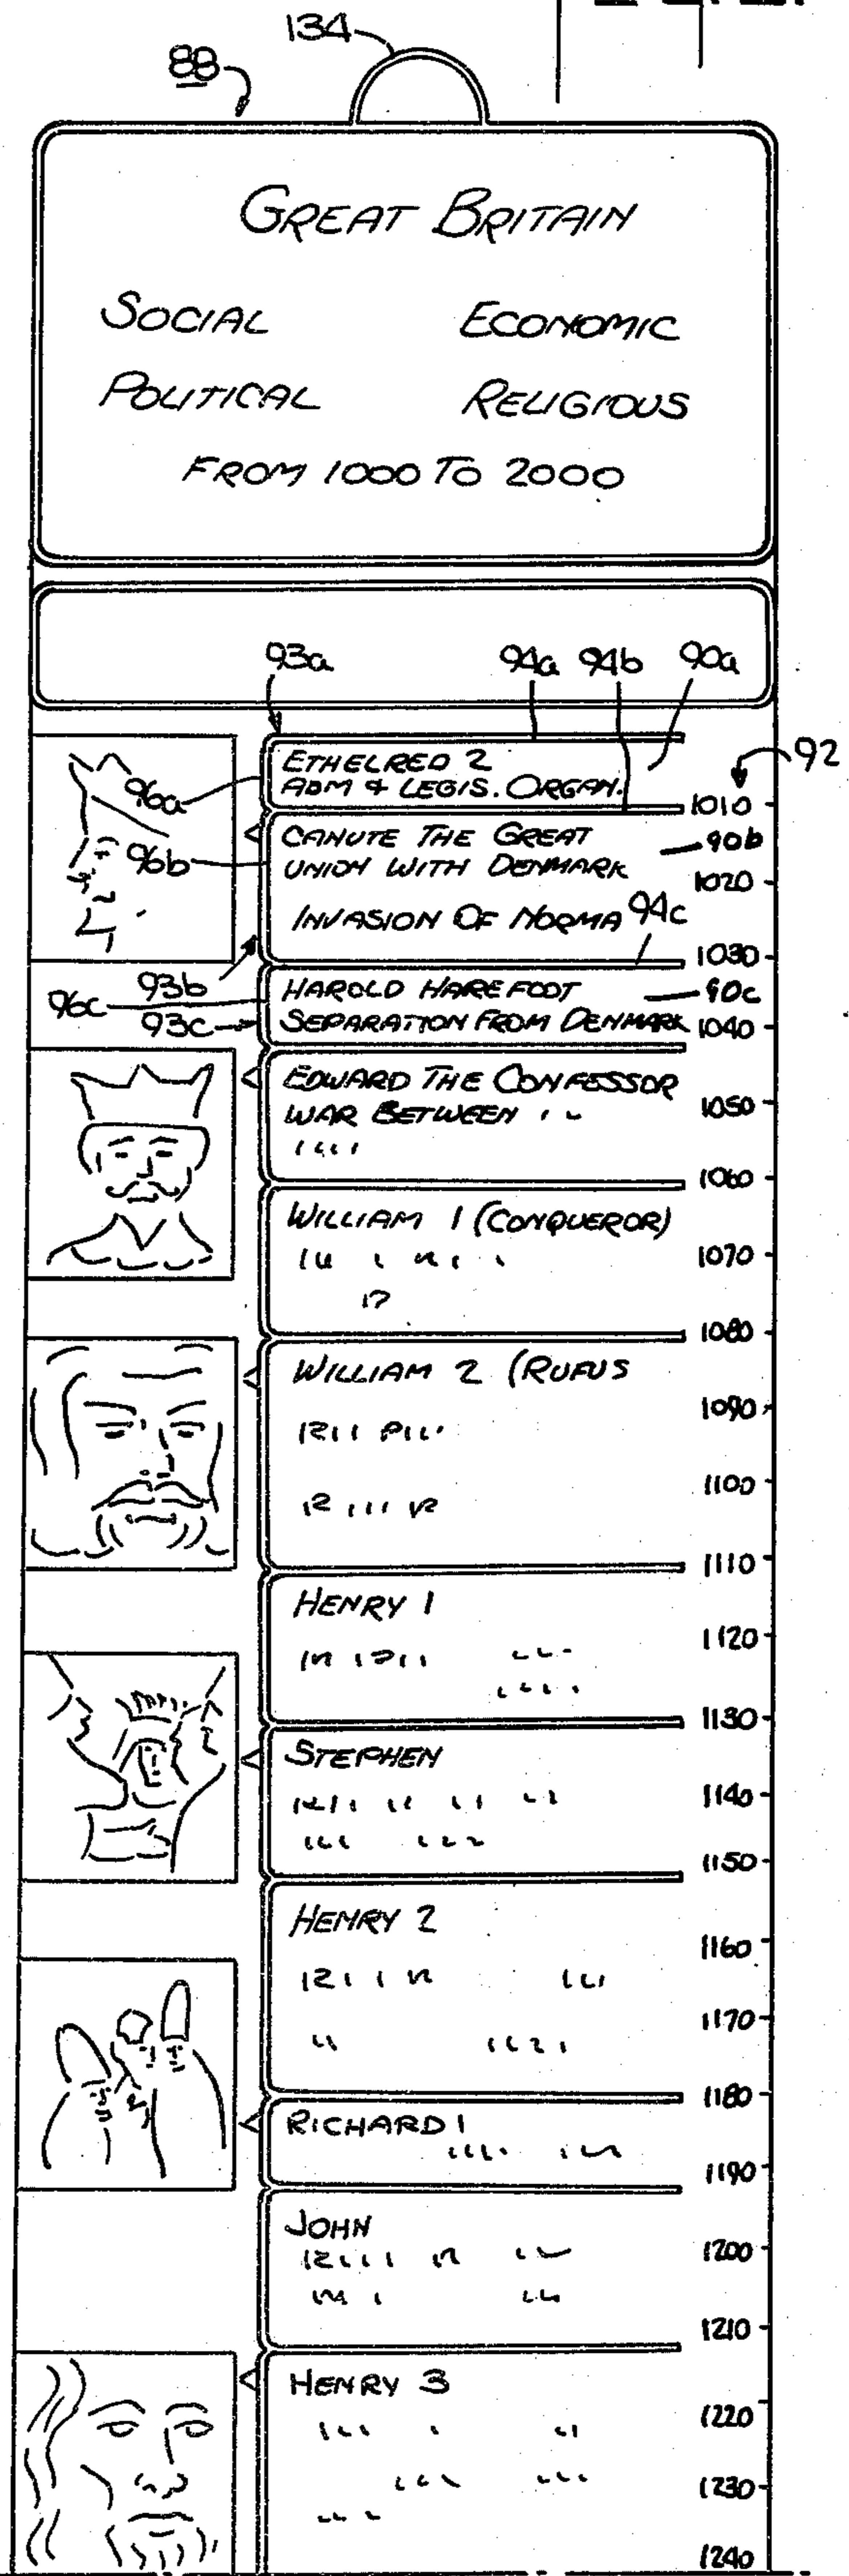 134
88
GREAT BRITAIN
SOCIAL ECONOMIC
POLITICAL RELIGIOUS
FROM 1000 TO 2000
93a 94a 94b 90a
92
ETHELRED 2
96a ADM & LEGIS. ORGAN.
1010
CANUTE THE GREAT 90b
96b UNION WITH DENMARK
1020
INVASION OF NORMA 94c
1030
93b HAROLD HAREFOOT 90c
96c
93c SEPARATION FROM DENMARK 1040
EDWARD THE CONFESSOR
WAR BETWEEN 1050
1060
WILLIAM 1 (CONQUEROR)
1070
1080
WILLIAM 2 (RUFUS
1090
1100
1110
HENRY 1
1120
1130
STEPHEN
1140
1150
HENRY 2
1160
1170
1180
RICHARD 1
1190
JOHN
1200
1210
HENRY 3
1220
1230
1240